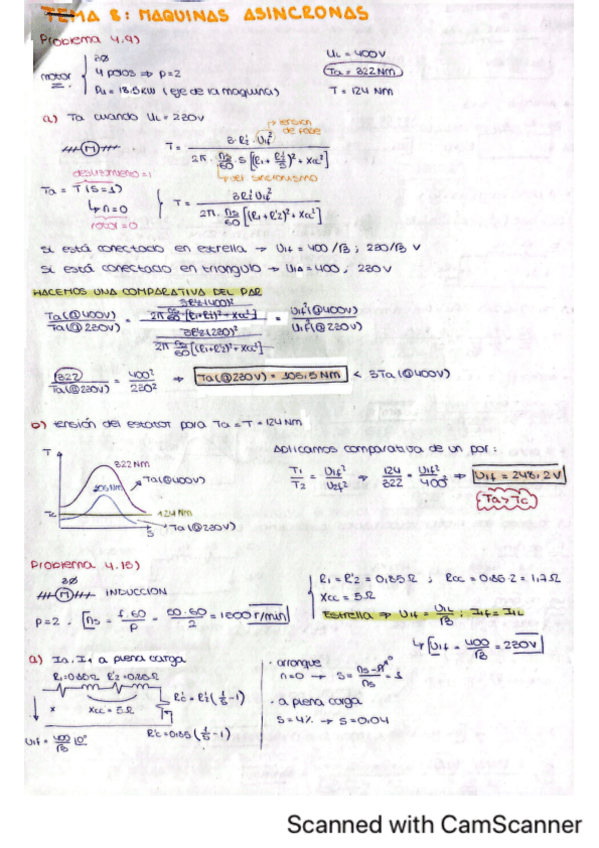 TEMA 8: MAQUINAS ASINCRONAS
Problema 4.9)
motor
3Ø
4 polos ⇒ p=2
Pu = 18.5kW (eje de la maquina)
UL = 400V
Ta = 322Nm
T = 124 Nm
a) Ta cuando UL = 230V
tensión de fase
T = 3·R'2·U1f² / 2π·ns/60·s[(R1+R'2/s)²+Xcc²]
vel sincronismo
deslizamiento=1
Ta = T(s=1)
↳ n=0
rotor=0
T = 3R'2U1f² / 2π·ns/60[(R1+R'2)²+Xcc²]
si está conectado en estrella → U1f = 400/√3 ; 230/√3 V
si está conectado en triangulo → U1Δ = 400, 230V
HACEMOS UNA COMPARATIVA DEL PAR
Ta(@400V) / Ta(@230V) = 3R'2(400)² / 2π ns/60 [(R1+R'2)²+Xcc²] / 3R'2(230)² / 2π ns/60 [(R1+R'2)²+Xcc²] = U1f²(@400V) / U1f²(@230V)
322 / Ta(@230V) = 400² / 230² ⇒ Ta(@230V) = 106,5 Nm < 3Ta(@400V)
b) tensión del estator para Ta = T = 124 Nm
T
322Nm
Ta(@400V)
106,Nm
Tc
124 Nm
Ta(@230V)
S
Aplicamos comparativa de un par:
T1/T2 = U1f²/U2f² ⇒ 124/322 = U1f²/400² ⇒ U1f = 248,2 V
Ta > Tc
Problema 4.15)
3Ø
M INDUCCION
p=2 · ns = f·60/p = 50·60/2 = 1500 r/min
R1 = R'2 = 0,85Ω ; Rcc = 0.85·2 = 1,7Ω
Xcc = 5Ω
Estrella ⇒ U1f = U1L/√3 ; I1f = I1L
↳ U1f = 400/√3 = 230V
a) Ia, I1 a plena carga
R1=0.85Ω R'2=0.85Ω
Xcc = 5Ω
R'c = R'2(1/s-1)
R'c = 0.85(1/s-1)
U1f = 400/√3 |0°
· arranque
n=0 → s = ns-n/ns = 1
· a plena carga
s = 4% → s = 0.04
Scanned with CamScanner